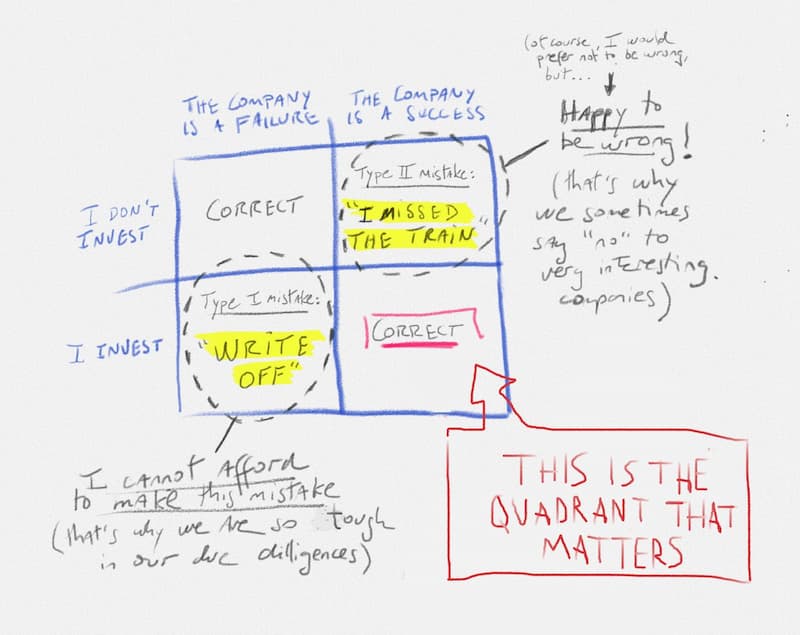 (of course, I would
prefer not to be wrong,
but...
THE COMPANY
IS A FAILURE
THE COMPANY
IS A SUCCESS
HAPPY to
be wrong!
(that's why
we sometimes
say "no" to
very interesting.
companies)
I DON'T
INVEST
CORRECT
Type II mistake:
"I MISSED
THE TRAIN"
I INVEST
Type I mistake:
"WRITE
OFF"
CORRECT
I CANNOT AFFORD
to make this mistake
(that's why we are so tough
in our due dilligences)
THIS IS THE
QUADRANT THAT
MATTERS